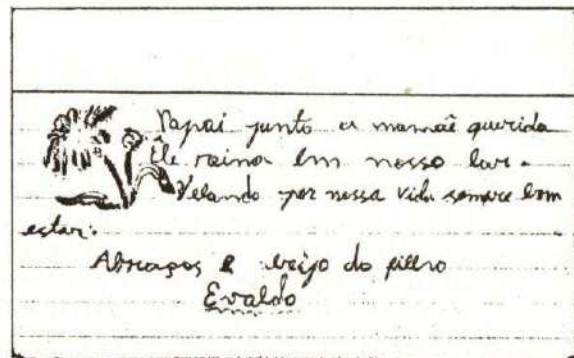 Papai junto a mamãe querida
Êle raina em nosso lar.
Velando por nossa vida sempre bem
estar.
Abraços e beijo do filho
Evaldo